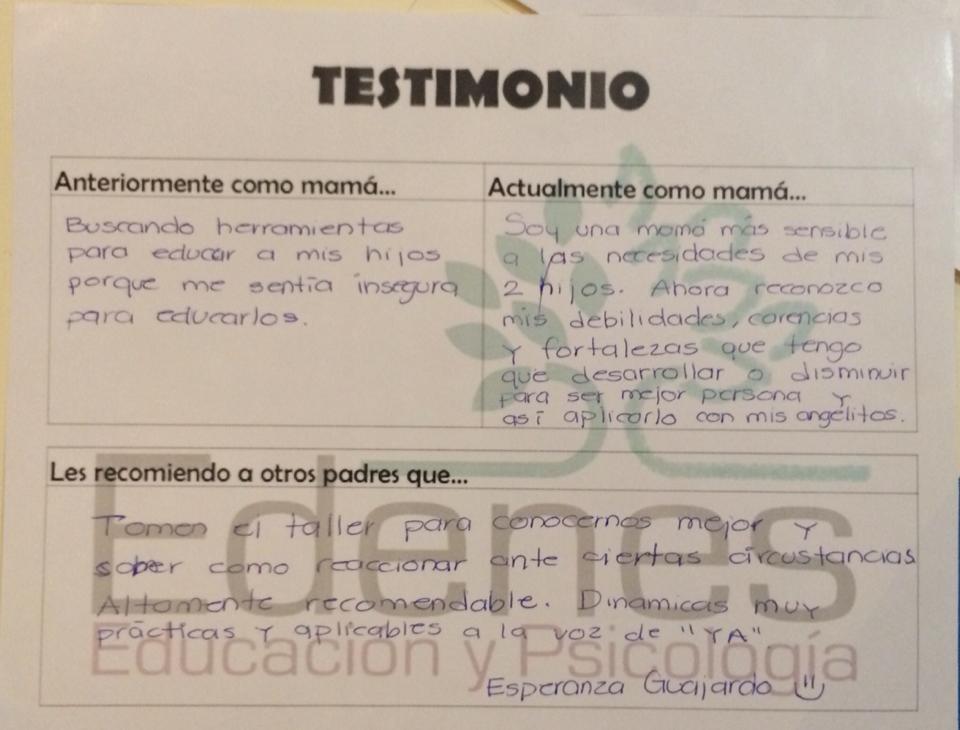 TESTIMONIO
Anteriormente como mamá...
Buscando herramientas
para educar a mis hijos
porque me sentía insegura
para educarlos.
Actualmente como mamá...
Soy una mamá más sensible
a las necesidades de mis
2 hijos. Ahora reconozco
mis debilidades, carencias
y fortalezas que tengo
que desarrollar o disminuir
para ser mejor persona y
así aplicarlo con mis angelitos.
Les recomiendo a otros padres que...
Tomen el taller para conocernos mejor y
saber como reaccionar ante ciertas circustancias
Altamente recomendable. Dinamicas muy
prácticas y aplicables a la voz de "YA"
Esperanza Guajardo
Edenes
Educación y Psicología